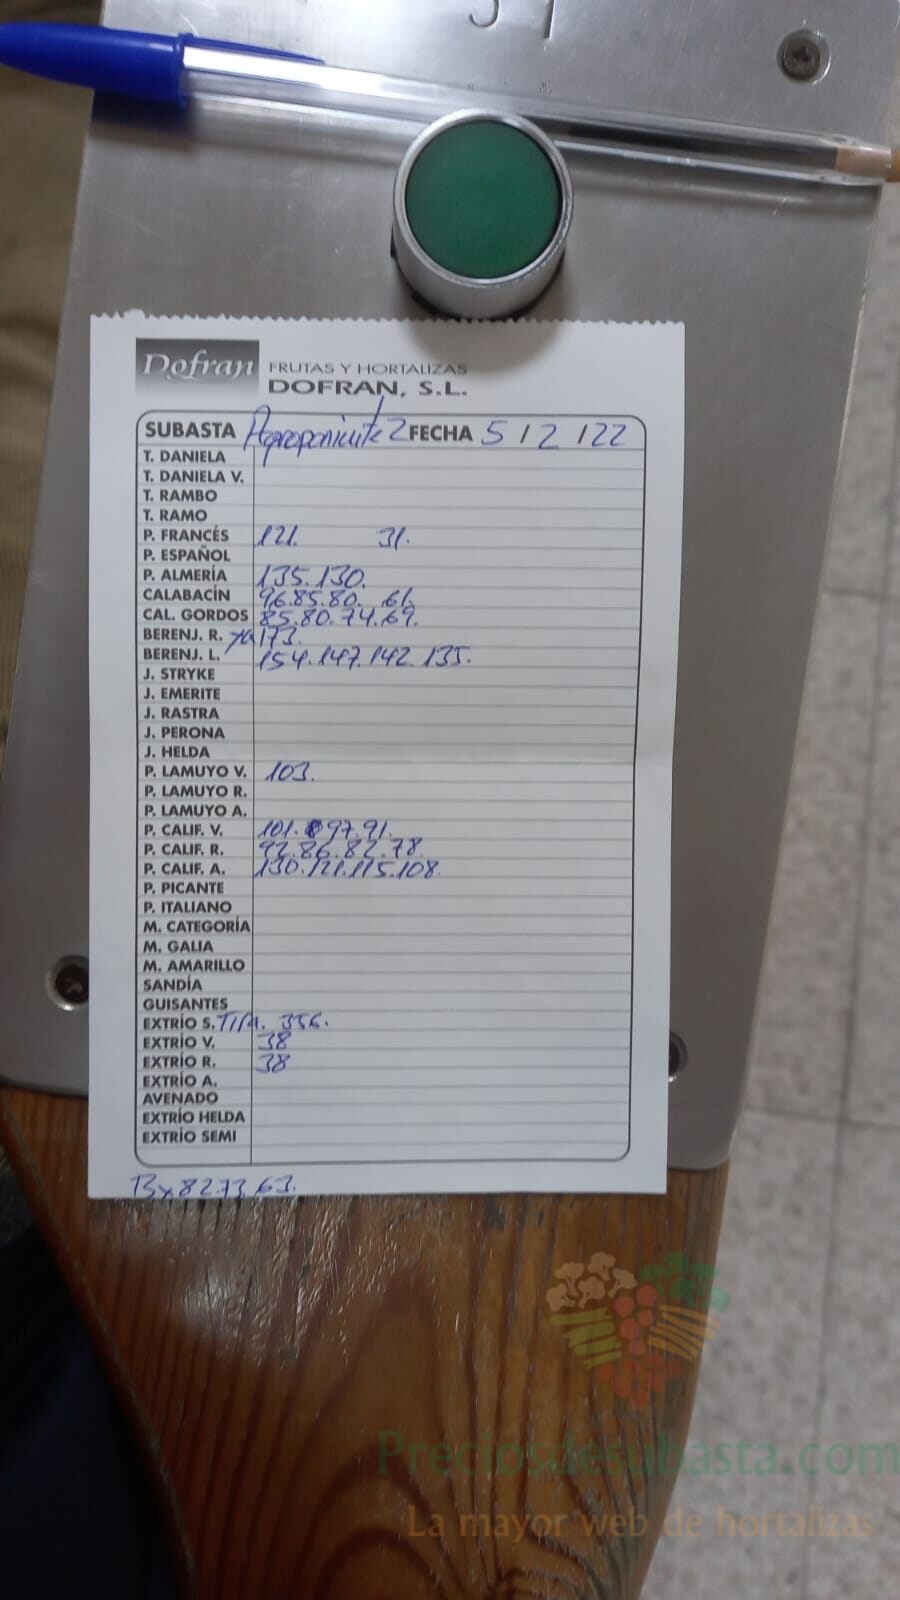 Dofran FRUTAS Y HORTALIZAS
DOFRAN, S.L.
SUBASTA Agroponiente 2 FECHA 5/2/22
T. DANIELA
T. DANIELA V.
T. RAMBO
T. RAMO
P. FRANCÉS 121. 31.
P. ESPAÑOL
P. ALMERÍA 135.130.
CALABACÍN 96.85.80. 61.
CAL. GORDOS 85.80.74.69.
BERENJ. R. 173.
BERENJ. L. 154.147.142.135.
J. STRYKE
J. EMERITE
J. RASTRA
J. PERONA
J. HELDA
P. LAMUYO V. 103.
P. LAMUYO R.
P. LAMUYO A.
P. CALIF. V. 101. 97.91.
P. CALIF. R. 92.86.82.78.
P. CALIF. A. 130.121.115.108.
P. PICANTE
P. ITALIANO
M. CATEGORÍA
M. GALIA
M. AMARILLO
SANDÍA
GUISANTES
EXTRÍO S. 356.
EXTRÍO V. 38
EXTRÍO R. 38
EXTRÍO A.
AVENADO
EXTRÍO HELDA
EXTRÍO SEMI
82.73.63.
Preciosdesubasta.com
La mayor web de hortalizas